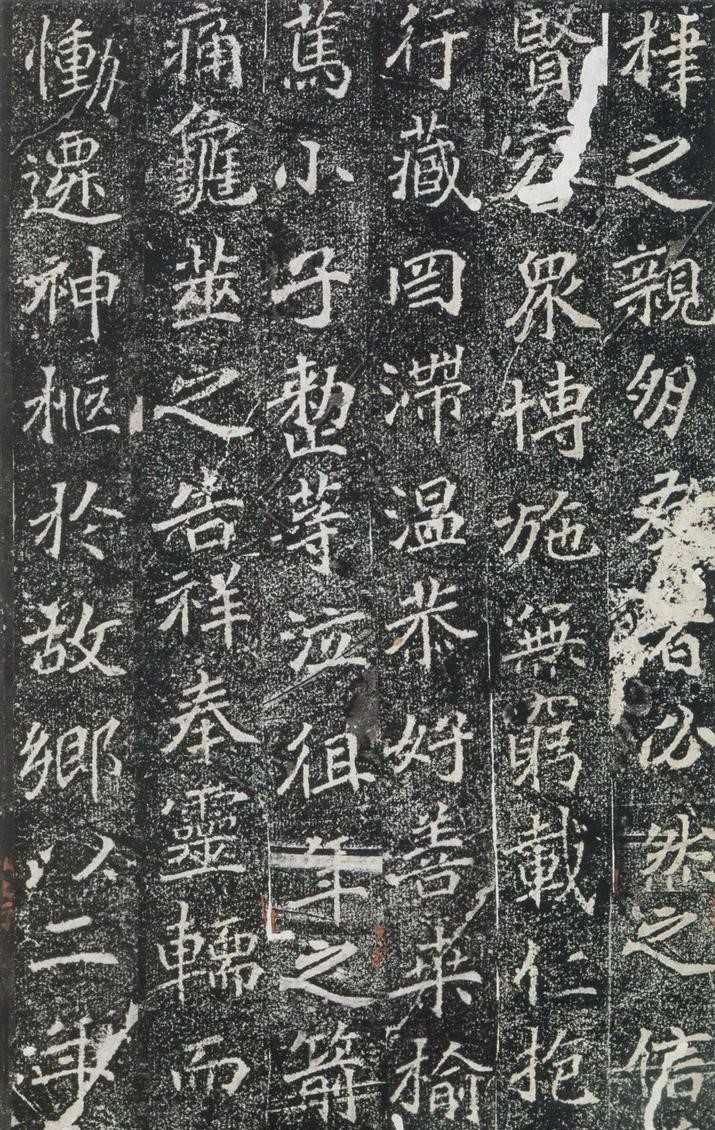 棣之親朋者必然之信
賢容衆博施無窮載仁抱
行藏罔滯温恭好善桑榆
篤小子整等泣徂年之箭
痛龜筮之告祥奉靈轜而
慟遷神柩於故鄉以二年